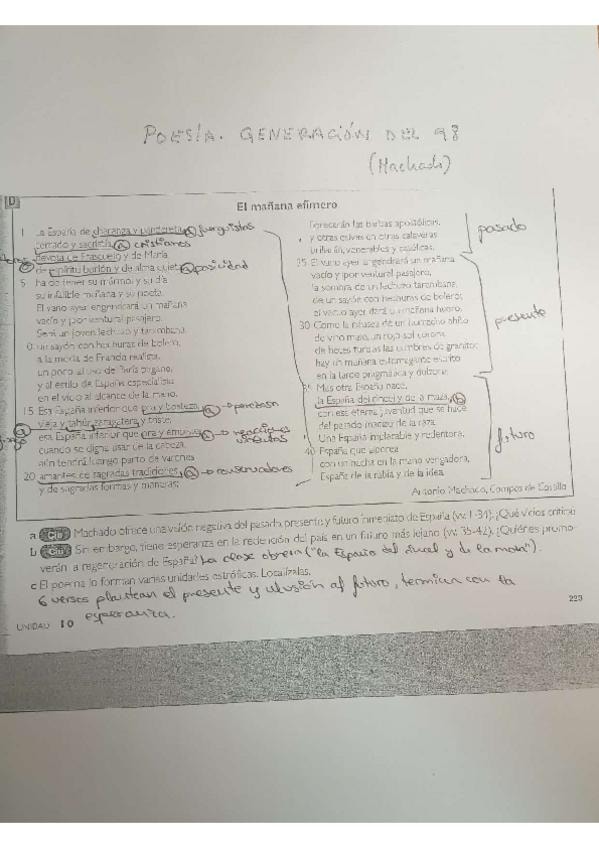 POESÍA. GENERACIÓN DEL 98
(Machado)
D
El mañana efímero
1 La España de charanga y pandereta, (a) juerguistas
cerrado y sacristía, (a) cristianos
devota de Frascuelo y de María,
de espíritu burlón y de alma quieta, (a) pasividad
5 ha de tener su mármol y su día,
su infalible mañana y su poeta.
El vano ayer engendrará un mañana
vacío y ¡por ventura! pasajero.
Será un joven lechuzo y tarambana,
10 un sayón con hechuras de bolero,
a la moda de Francia realista,
un poco al uso de París pagano,
y al estilo de España especialista
en el vicio al alcance de la mano.
15 Esa España inferior que ora y bosteza, (a) → perezosa
vieja y tahúr, zaragatera y triste;
esa España inferior que ora y embiste, (a) → reacciones violentas
cuando se digna usar de la cabeza,
aún tendrá luengo parto de varones
20 amantes de sagradas tradiciones (a) → conservadores
y de sagradas formas y maneras;
florecerán las barbas apostólicas,
y otras calvas en otras calaveras
brillarán, venerables y católicas.
25 El vano ayer engendrará un mañana
vacío y ¡por ventura! pasajero,
la sombra de un lechuzo tarambana,
de un sayón con hechuras de bolero;
el vacuo ayer dará un mañana huero.
30 Como la náusea de un borracho ahíto
de vino malo, un rojo sol corona
de heces turbias las cumbres de granito;
hay un mañana estomagante escrito
en la tarde pragmática y dulzona.
35 Mas otra España nace,
la España del cincel y de la maza, (b)
con esa eterna juventud que se hace
del pasado macizo de la raza.
Una España implacable y redentora,
40 España que alborea
con un hacha en la mano vengadora,
España de la rabia y de la idea.
pasado
presente
futuro
Antonio Machado, Campos de Castilla
a Machado ofrece una visión negativa del pasado, presente y futuro inmediato de España (vv. 1-34). ¿Qué vicios critica?
b Sin embargo, tiene esperanza en la redención del país en un futuro más lejano (vv. 35-42). ¿Quiénes promo-
verán la regeneración de España? La clase obrera ("la España del cincel y de la maza").
c El poema lo forman varias unidades estróficas. Localízalas.
6 versos plantean el presente y alusión al futuro, termina con la
esperanza.
UNIDAD 10
223